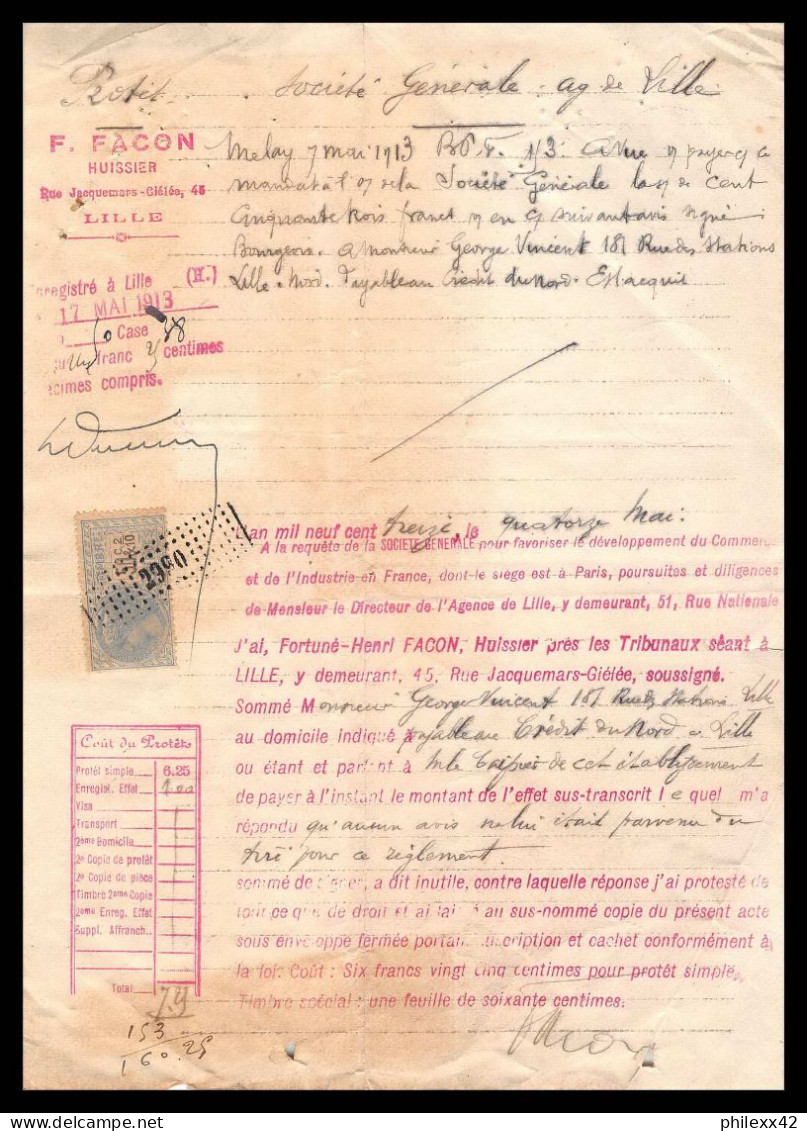 Protêt Société Générale ag de Lille
F. FACON
HUISSIER
Rue Jacquemars-Giélée, 45
LILLE
Melay 7 mai 1913 B.P.F. 153. A vue payer
mandat à l' de la Société Générale la de cent
cinquante trois francs en suivant avis signé
Bourgeois. a Monsieur George Vincent 181 Rue des Stations
Lille. Nord. Payable au Crédit du Nord.
nregistré à Lille (H.)
17 MAI 1913
Case
franc centimes
cimes compris.
2990
L'an mil neuf cent treize, le quatorze Mai.
A la requête de la SOCIÉTÉ GÉNÉRALE pour favoriser le développement du Commerce
et de l'Industrie en France, dont le siège est à Paris, poursuites et diligences
de Monsieur le Directeur de l'Agence de Lille, y demeurant, 51, Rue Nationale
J'ai, Fortuné-Henri FACON, Huissier près les Tribunaux séant à
LILLE, y demeurant, 45, Rue Jacquemars-Giélée, soussigné.
Sommé Monsieur George Vincent 181 Rue des Stations Lille
au domicile indiqué payable au Crédit du Nord à Lille
ou étant et parlant à de cet établissement
de payer à l'instant le montant de l'effet sus-transcrit le quel m'a
répondu qu'aucun avis ne lui était parvenu du
tiré pour ce règlement.
sommé de signer, a dit inutile, contre laquelle réponse j'ai protesté de
tout ce que de droit et ai laissé au sus-nommé copie du présent acte
sous enveloppe fermée portant suscription et cachet conformément à
la loi. Coût : Six francs vingt cinq centimes pour protêt simple,
Timbre spécial : une feuille de soixante centimes.
Coût du Protêts
Protêt simple 6.25
Enregist. Effet 1.00
Visa
Transport
2ème Domicile
2e Copie de protêt
2e Copie de pièce
Timbre 2ème Copie
2ème Enreg. Effet
Suppl. Affranch.
Total
153
160.25
philexx42